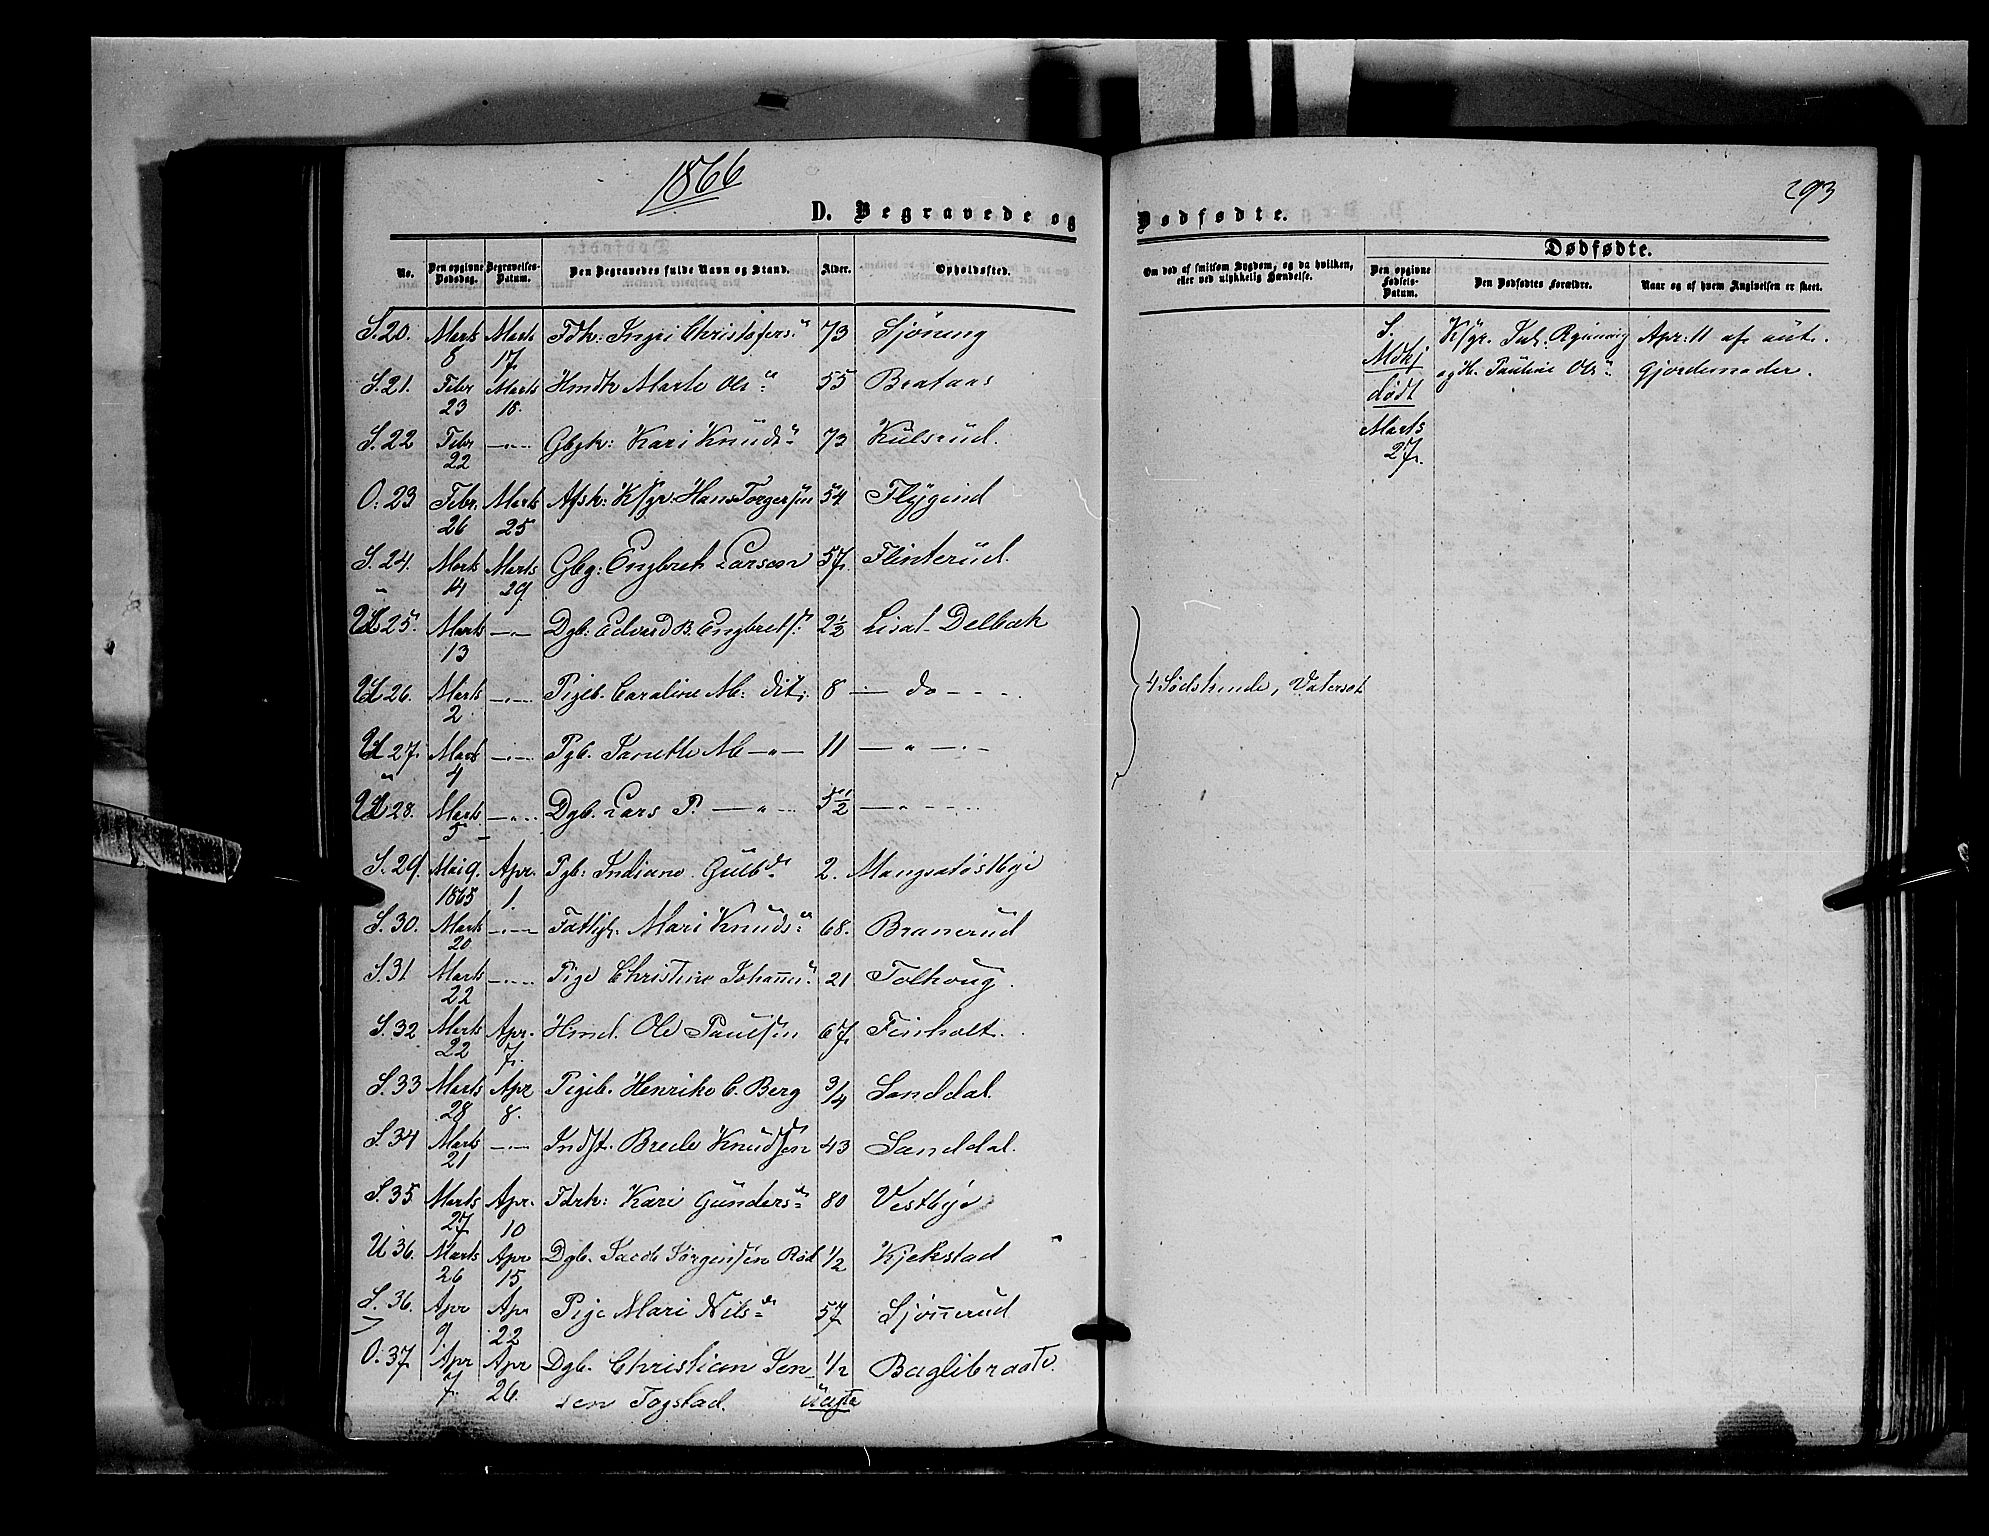 1866
293
D. Begravede og Dødfødte.
No. Den opgivne Dødsdag. Begravelses-Datum. Den Begravedes fulde Navn og Stand. Alder. Opholdssted.
Om død af smitsom Sygdom, og da hvilken, eller ved ulykkelig Hændelse.
Dødfødte.
Den opgivne Fødsels-Datum. Den Dødfødtes Forældre. Naar og af hvem Angivelsen er skeet.
S. 20. Marts 8 Marts 17. Fdk: Ingri Christofersd 73 Sjönung
S. 21. Febr 23 Marts 18. Hmdk Marte Olsd 55 Brataas
S. 22 Febr 22 —"— Gbgk: Kari Knudsd 73 Kulsrud.
O: 23 Febr. 26 Marts 25 Afsk: K/gr: Hans Torgersen 54 Flygind
S. 24. Marts 14 Marts 29 Gbg: Engbret Larsen 57. Flinterud.
25. Marts 13 —"— Dgb: Edvard B. Engbrets: 2½ Lisal. Delbæk
26. Marts 2 —"— Pigeb. Caroline M: dit: 8 — do — — —
27. Marts 4 —"— Pgb. Janette M —"— 11 — " — —
28. Marts 5 —"— Dgb. Lars P. —"— 5½ — " — —
4 Södskende, Vatersot
S. 29. Mai 9. 1865 Apr. 1. Pgb: Indiane Gulbd 2. Mangsatöstbye
S. 30. Marts 20 —"— Fattigl. Mari Knudsd 68. Branerud
S. 31 Marts 22 —"— Pige Christine Johansd 21 Tolhoug.
S. 32 Marts 22 Apr. 7. Hmd. Ole Paulsen 67. Finholt.
S. 33 Marts 28 Apr 8. Pigeb. Henrike C. Berg 3/4 Sanddal.
S. 34 Marts 21 —"— Indst. Brede Knudsen 43 Sanddal.
S. 35 Marts 27 Apr. 10 Fdrk: Kari Gundersd 80 Vestbye
U 36. Marts 26 Apr 15 Dgb. Jacob Jørgensen Rød 1/2 Kjekstad
S. 36. Apr 9 Apr 22 Pige Mari Nilsd 57 Sjönnerud
O: 37 Apr 7. Apr 26. Dgb. Christian Jen- 1/2 Baglibraate.
sen Togstad. uægte
S.
Mdkj
dødt
Marts
27.
K/gr. Joh.
og H. Pauline Olsd
Apr: 11 af aut.
Gjordemoder.